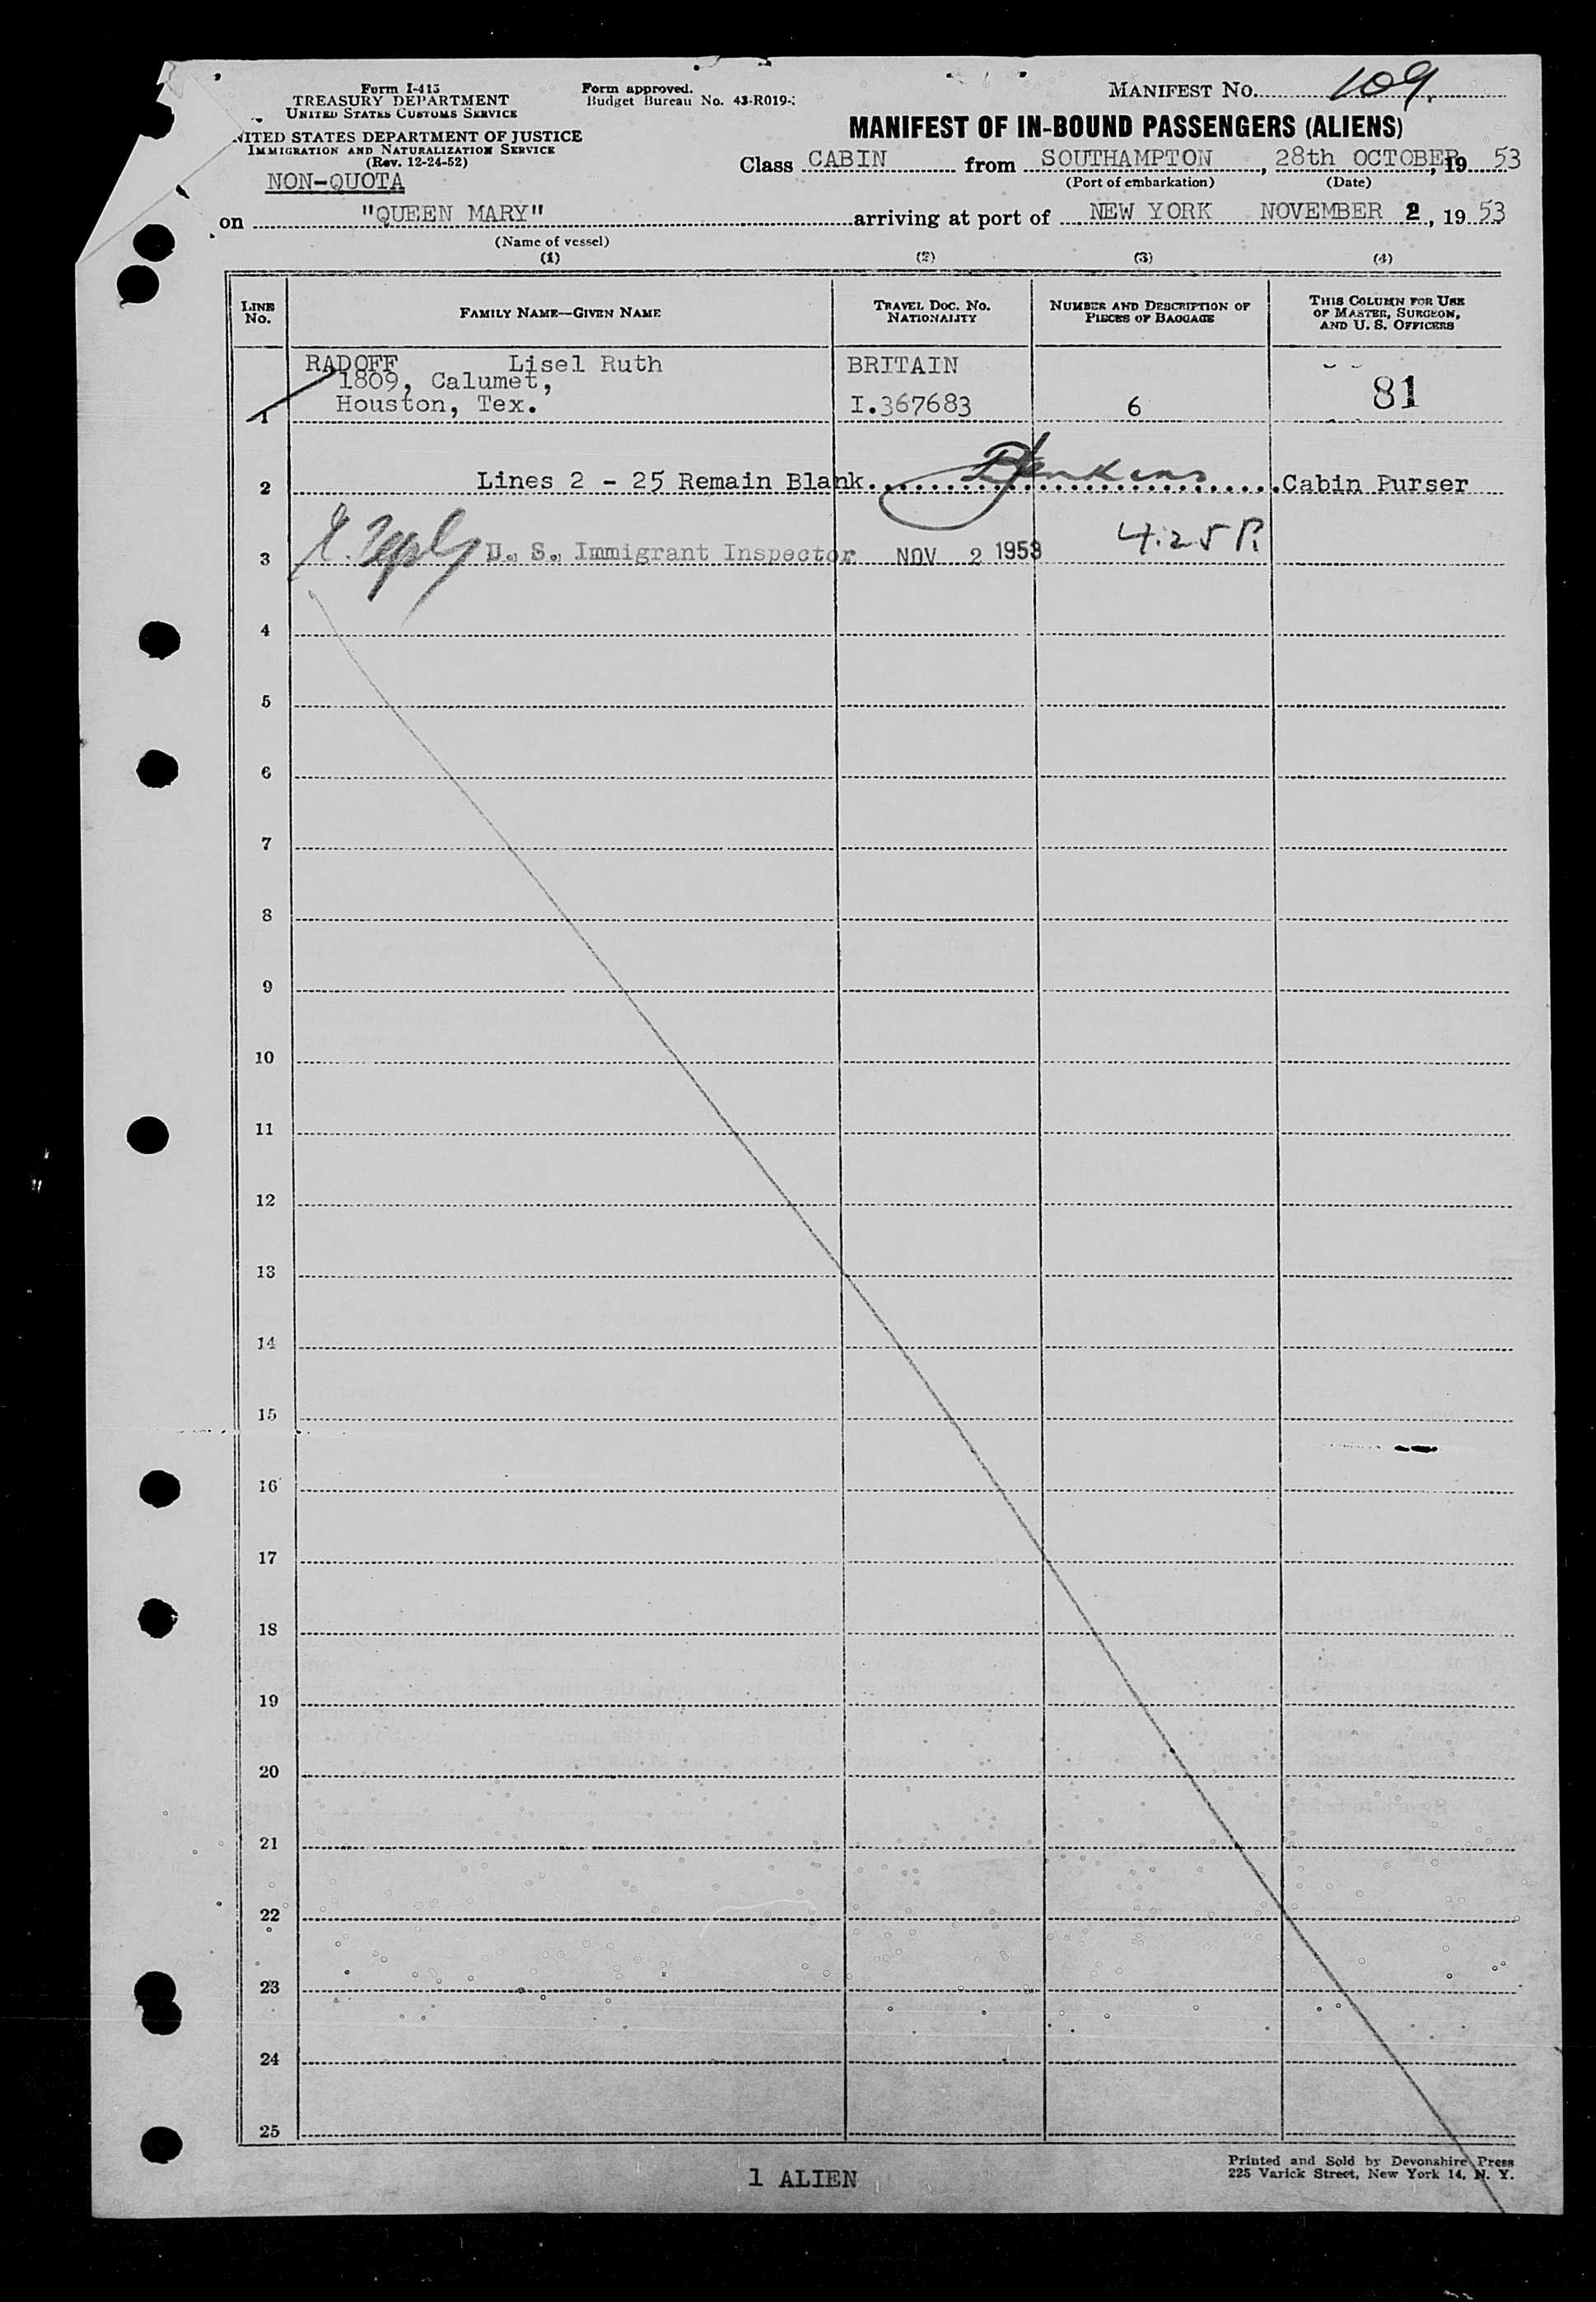 Form I-415
TREASURY DEPARTMENT
UNITED STATES CUSTOMS SERVICE
NITED STATES DEPARTMENT OF JUSTICE
IMMIGRATION AND NATURALIZATION SERVICE
(Rev. 12-24-52)
NON-QUOTA
Form approved.
Budget Bureau No. 43-R019-
MANIFEST NO. 109.
MANIFEST OF IN-BOUND PASSENGERS (ALIENS)
Class CABIN from SOUTHAMPTON, 28th OCTOBER, 19 53
(Port of embarkation) (Date)
on "QUEEN MARY" arriving at port of NEW YORK NOVEMBER 2, 19 53
(Name of vessel)
(1) (2) (3) (4)
LINE No. FAMILY NAME—GIVEN NAME TRAVEL DOC. NO. NATIONALITY NUMBER AND DESCRIPTION OF PIECES OF BAGGAGE THIS COLUMN FOR USE OF MASTER, SURGEON, AND U. S. OFFICERS
RADOFF Lisel Ruth BRITAIN
1809, Calumet, 81
1 Houston, Tex. I.367683 6
2 Lines 2 - 25 Remain Blank. Jenkins .Cabin Purser
3 U. S. Immigrant Inspector NOV 2 1953 4.25 P.
4
5
6
7
8
9
10
11
12
13
14
15
16
17
18
19
20
21
22
23
24
25
1 ALIEN
Printed and Sold by Devonshire Press
225 Varick Street, New York 14, N. Y.